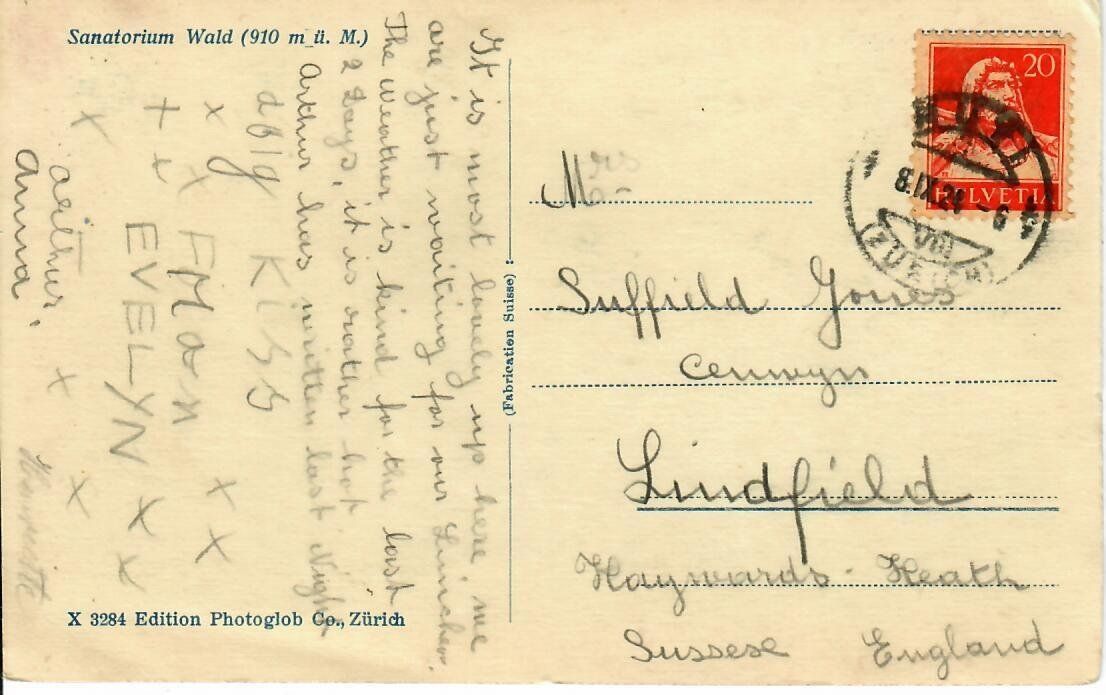 Sanatorium Wald (910 m ü. M.)
It is most lovely up here we
are just waiting for our Luncheon.
The weather is kind for the last
2 days, it is rather hot
Arthur has written last Night
KISS
EVELYN
Arthur.
Anna
X 3284 Edition Photoglob Co., Zürich
(Fabrication Suisse)
20
HELVETIA
8.IX.2 -6
VIII
(ZÜRICH)
Mrs
Suffield Jones
Cenwyn
Lindfield
Haywards-Heath
Sussese England